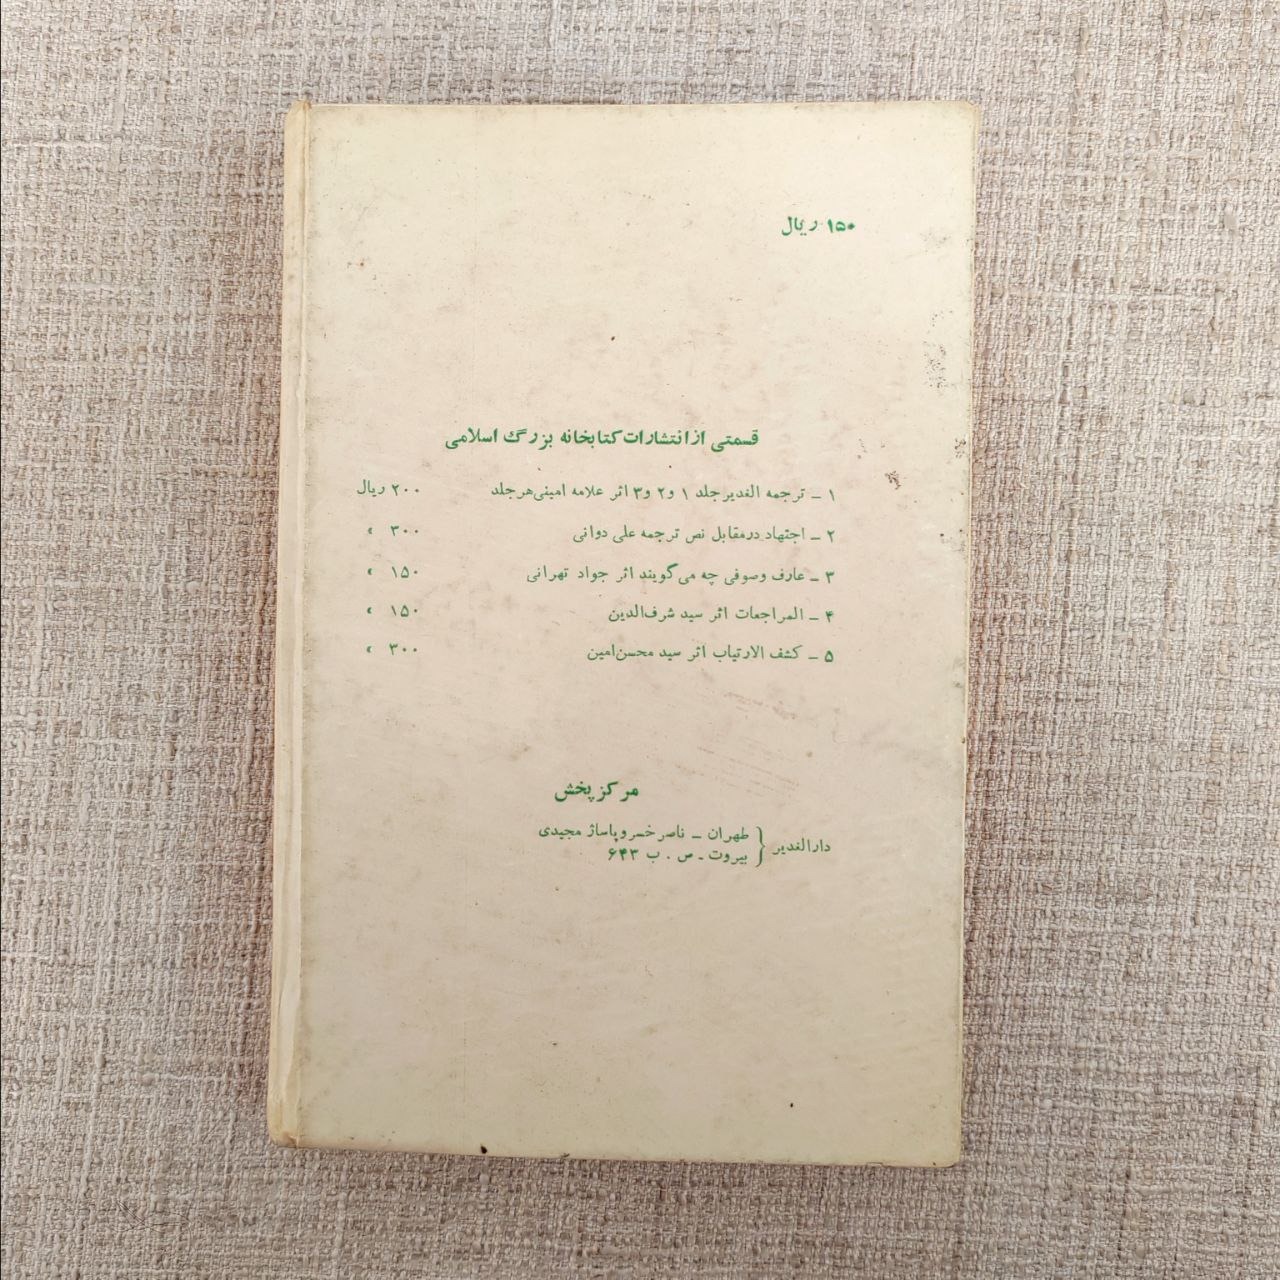 ۱۵۰ ریال
قسمتی از انتشارات کتابخانه بزرگ اسلامی
۱ ـ ترجمه الغدیر جلد ۱ و۲ و۳ اثر علامه امینی هر جلد ۲۰۰ ریال
۲ ـ اجتهاد در مقابل نص ترجمه علی دوانی ۳۰۰ »
۳ ـ عارف وصوفی چه می‌گویند اثر جواد تهرانی ۱۵۰ »
۴ ـ المراجعات اثر سید شرف‌الدین ۱۵۰ »
۵ ـ کشف الارتیاب اثر سید محسن امین ۳۰۰ »
مرکز پخش
دارالغدیر { طهران ـ ناصر خسرو پاساژ مجیدی
بیروت ـ ص . ب ۶۴۳